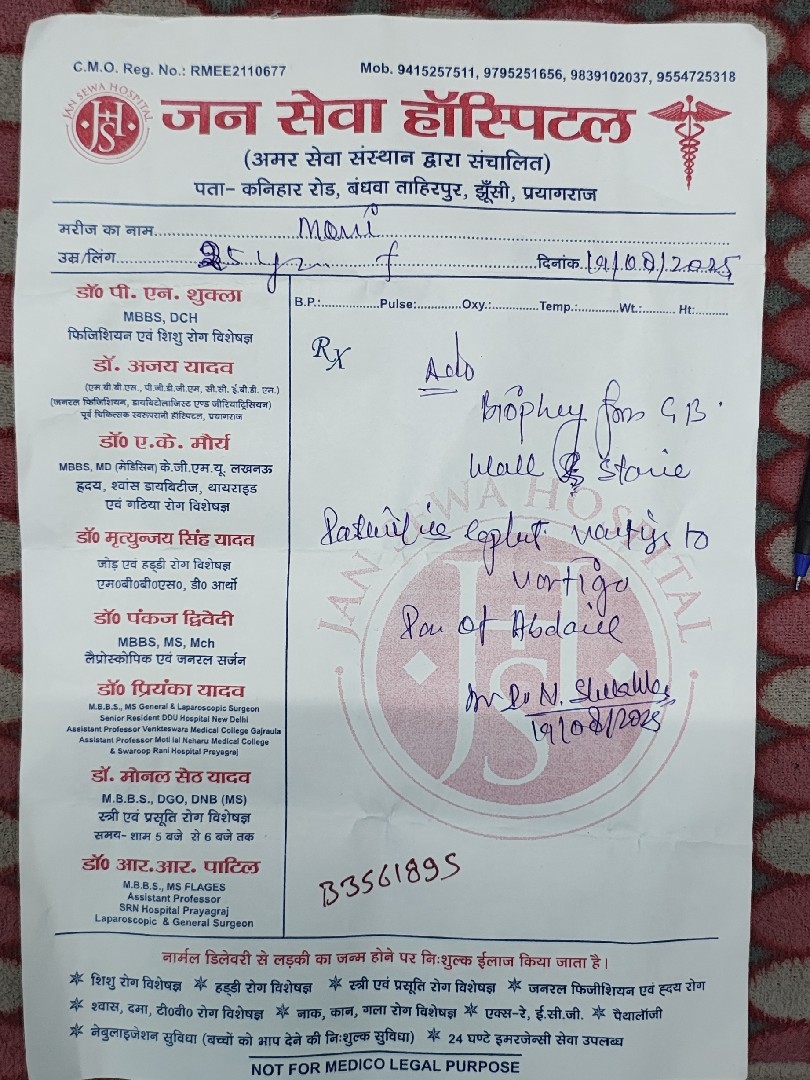 C.M.O. Reg. No.: RMEE2110677
Mob. 9415257511, 9795251656, 9839102037, 9554725318
JAN SEWA HOSPITAL
जन सेवा हॉस्पिटल
(अमर सेवा संस्थान द्वारा संचालित)
पता- कनिहार रोड, बंधवा ताहिरपुर, झूँसी, प्रयागराज
मरीज का नाम
उम्र/लिंग 25 f दिनांक 19/08/2025
B.P.: Pulse: Oxy.: Temp.: Wt.: Ht:
डॉ० पी. एन. शुक्ला
MBBS, DCH
फिजिशियन एवं शिशु रोग विशेषज्ञ
डॉ. अजय यादव
(एम बी बी एस., पी.जी.डी.जी.एम, सी.सी. ई.बी.डी. एम.)
(जनरल फिजिशियन, डायबिटोलाजिस्ट एण्ड जीरियाट्रिसियन)
पूर्व चिकित्सक स्वरूपरानी हॉस्पिटल, प्रयागराज
डॉ० ए.के. मौर्य
MBBS, MD (मेडिसिन) के.जी.एम.यू. लखनऊ
ह्रदय, श्वांस डायबिटीज, थायराइड
एवं गठिया रोग विशेषज्ञ
डॉ० मृत्युन्जय सिंह यादव
जोड़ एवं हड्डी रोग विशेषज्ञ
एम०बी०बी०एस०, डी० आर्थो
डॉ० पंकज द्विवेदी
MBBS, MS, Mch
लैप्रोस्कोपिक एवं जनरल सर्जन
डॉ० प्रियंका यादव
M.B.B.S., MS General & Laparoscopic Surgeon
Senior Resident DDU Hospital New Delhi
Assistant Professor Venkteswara Medical College Gajraula
Assistant Professor Moti lal Neharu Medical College
& Swaroop Rani Hospital Prayagraj
डॉ. मोनल सेठ यादव
M.B.B.S., DGO, DNB (MS)
स्त्री एवं प्रसूति रोग विशेषज्ञ
समय- शाम 5 बजे से 6 बजे तक
डॉ० आर.आर. पाटिल
M.B.B.S., MS FLAGES
Assistant Professor
SRN Hospital Prayagraj
Laparoscopic & General Surgeon
Rx
for G B
Wall & Stone
to
vortigo
of
19/08/2025
B3561895
JAN SEWA HOSPITAL
नार्मल डिलेवरी से लड़की का जन्म होने पर निःशुल्क ईलाज किया जाता है।
* शिशु रोग विशेषज्ञ * हड्डी रोग विशेषज्ञ * स्त्री एवं प्रसूति रोग विशेषज्ञ * जनरल फिजीशियन एवं ह्रदय रोग
* श्वास, दमा, टी०बी० रोग विशेषज्ञ * नाक, कान, गला रोग विशेषज्ञ * एक्स-रे, ई.सी.जी. * पैथालॉजी
* नेबुलाइजेशन सुविधा (बच्चों को भाप देने की निःशुल्क सुविधा) * 24 घण्टे इमरजेन्सी सेवा उपलब्ध
NOT FOR MEDICO LEGAL PURPOSE